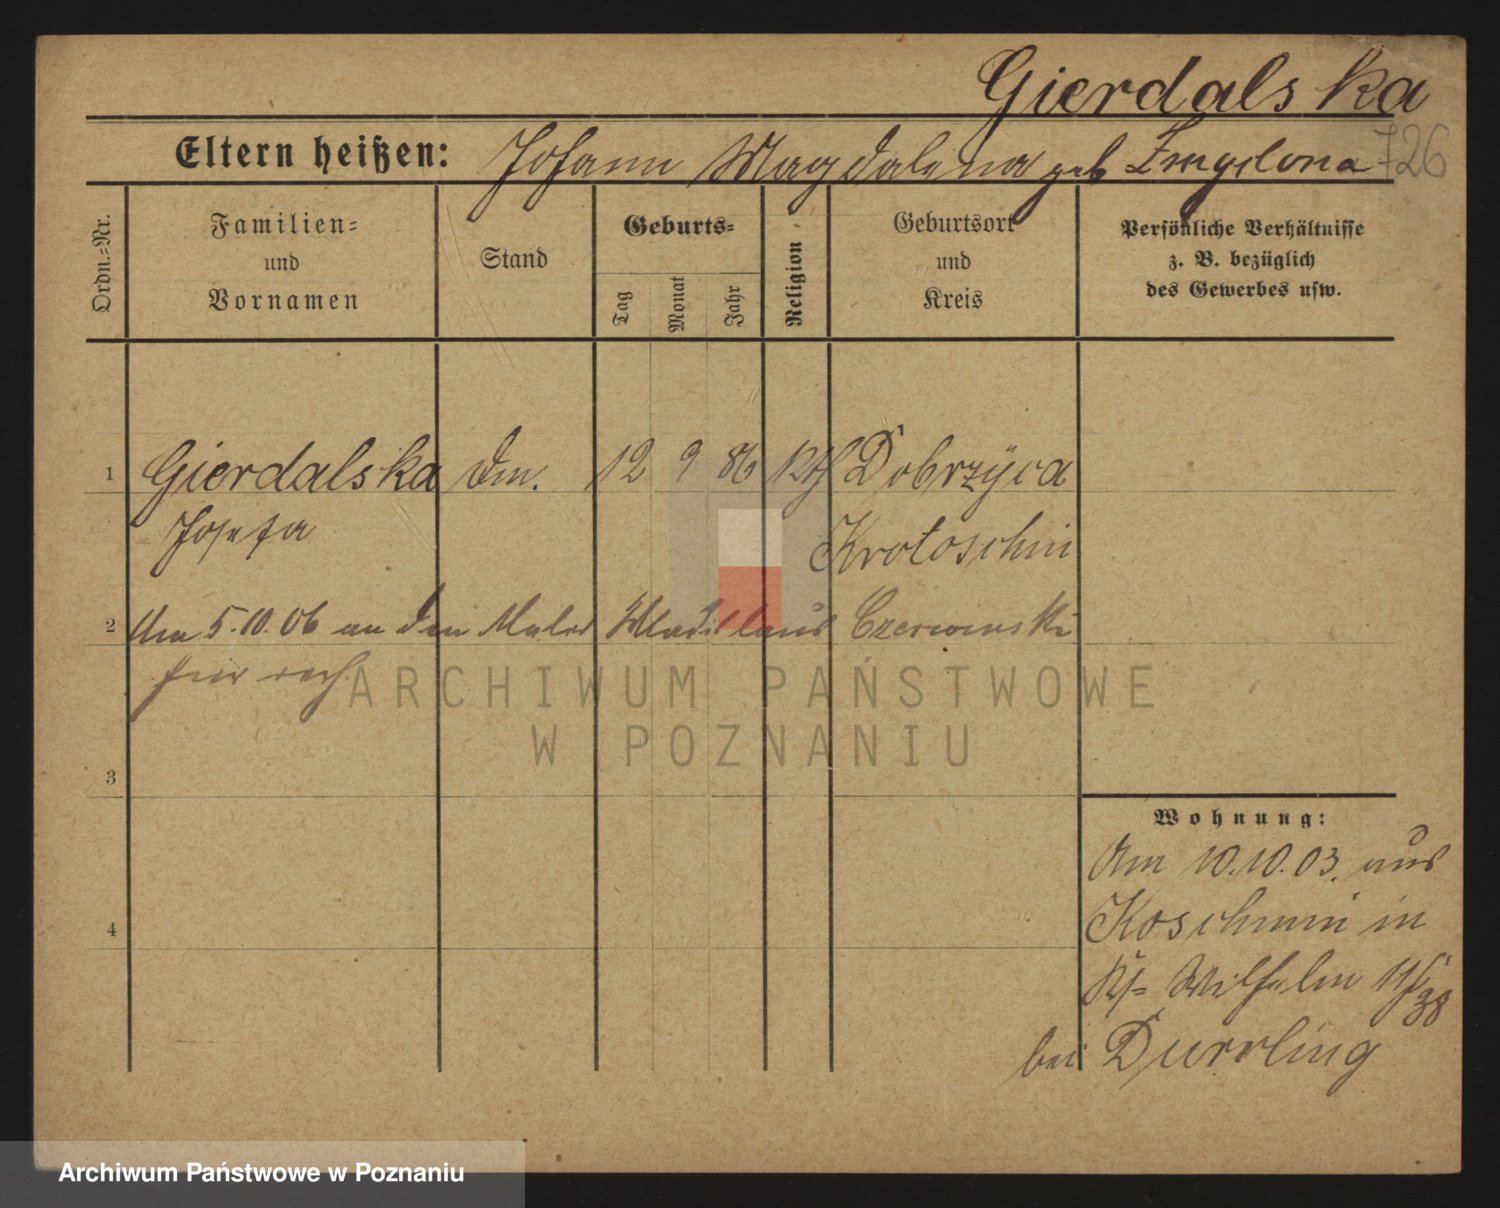 Gierdalska
726
Eltern heißen: Johann Magdalena geb
Ordn.-Nr.
Familien-
und
Vornamen
Stand
Geburts-
Tag
Monat
Jahr
Religion
Geburtsort
und
Kreis
Persönliche Verhältnisse
z. B. bezüglich
des Gewerbes usw.
1 Gierdalska 12 9 86 Kth Dobrzyca
Josefa Krotoschin
2 Am 5.10.06 an den Maler Wladislaus Czerwinski
3
4
Wohnung:
Am 10.10.03. aus
Koschmin in
Wilhelm
38
bei Durrling
ARCHIWUM PAŃSTWOWE
W POZNANIU
Archiwum Państwowe w Poznaniu